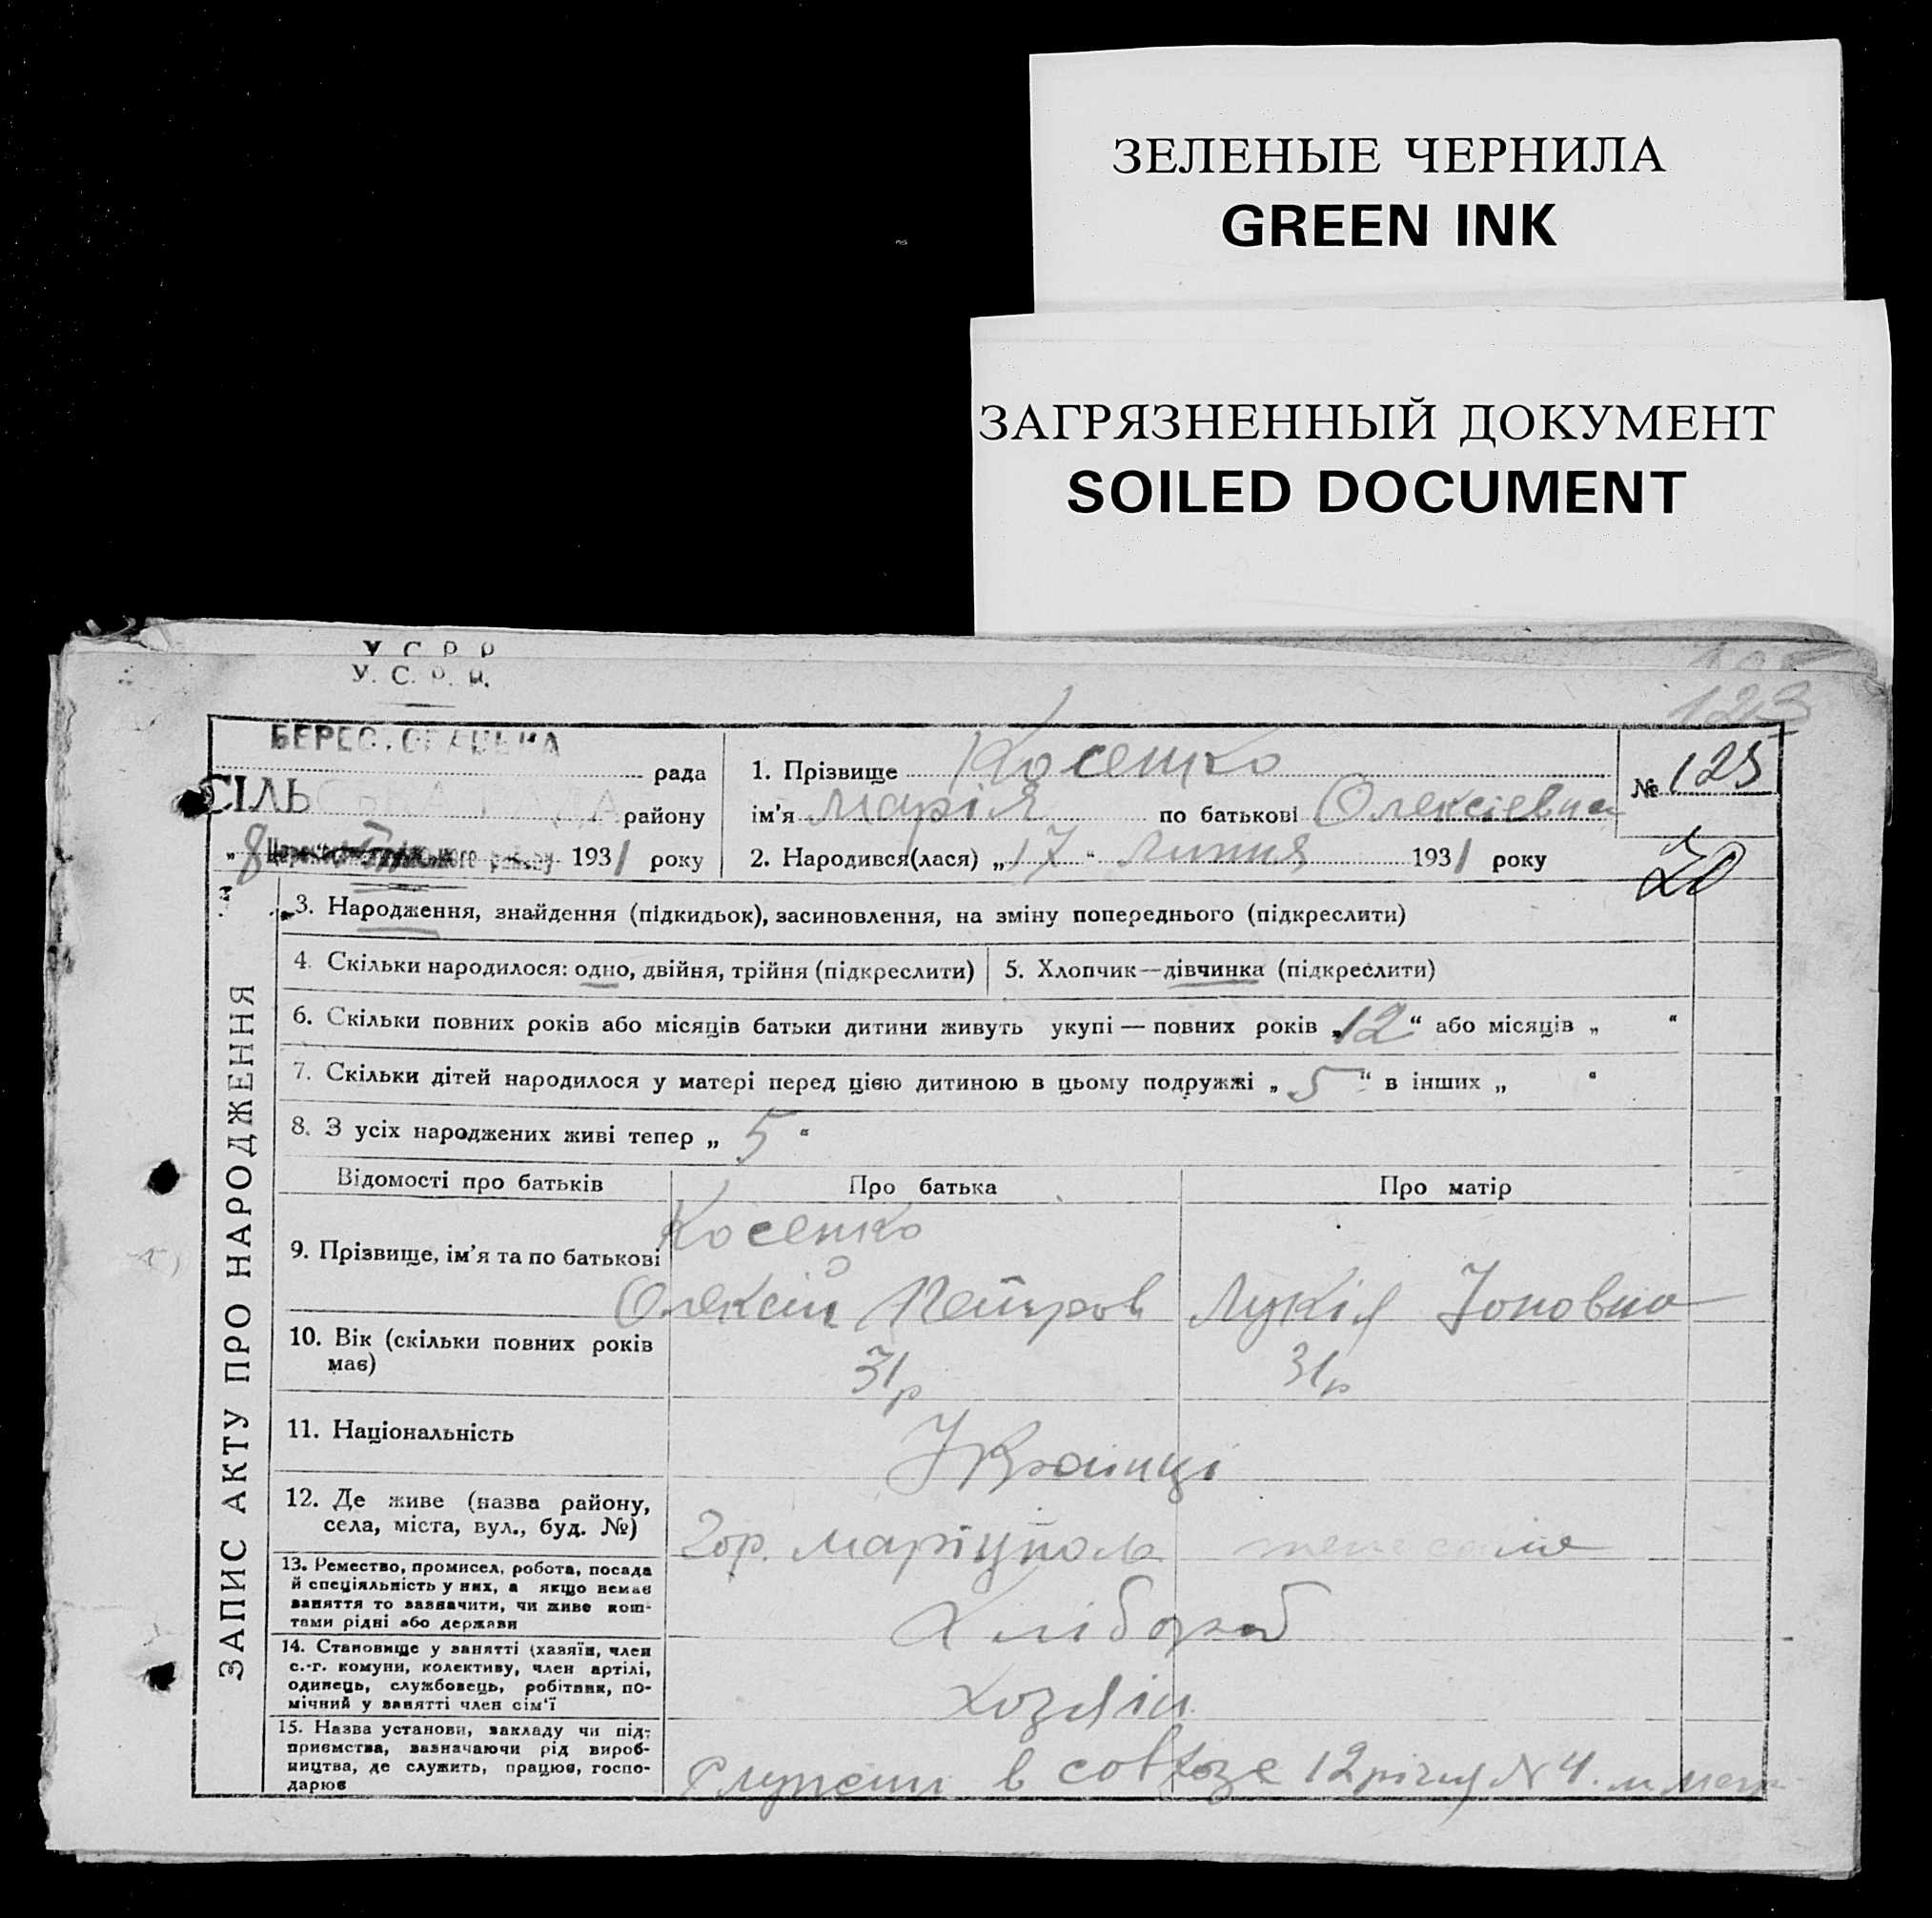 ЗЕЛЕНЫЕ ЧЕРНИЛА
GREEN INK
ЗАГРЯЗНЕННЫЙ ДОКУМЕНТ
SOILED DOCUMENT
У. С. Р. Р.
У. С. Р. Р.
123
рада
СІЛЬСЬКА РАДА
району
„8 1931 року
1. Прізвище Косенко
ім'я Марія по батькові Олексіевна
№ 125
2. Народився(лася) „17“ Липня 1931 року
20
ЗАПИС АКТУ ПРО НАРОДЖЕННЯ
3. Народження, знайдення (підкидьок), засиновлення, на зміну попереднього (підкреслити)
4. Скільки народилося: одно, двійня, трійня (підкреслити)
5. Хлопчик—дівчинка (підкреслити)
6. Скільки повних років або місяців батьки дитини живуть укупі — повних років „12“ або місяців „ “
7. Скільки дітей народилося у матері перед цією дитиною в цьому подружжі „5“ в інших „ “
8. З усіх народжених живі тепер „5“
Відомості про батьків
Про батька
Про матір
9. Прізвище, ім'я та по батькові
Косенко
Олексій Петров
Лукія Іоновна
10. Вік (скільки повних років
має)
31р
31р
11. Національність
Українці
12. Де живе (назва району,
села, міста, вул., буд. №)
гор. Маріуполь
13. Ремество, промисел, робота, посада
й спеціяльність у них, а якщо немає
заняття то зазначити, чи живе кош-
тами рідні або держави
Хлібороб
14. Становище у занятті (хазяїн, член
с.-г. комуни, колективу, член артілі,
одинець, службовець, робітник, по-
мічний у занятті член сім'ї
Хозяін
15. Назва установи, закладу чи під-
приємства, зазначаючи рід вироб-
ництва, де служить, працює, госпо-
дарює
в совхозе 12річчя N 4. м